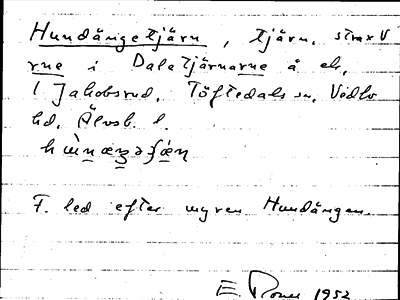 Hundängetjärn, tjärn, strax V
rne i Daletjärnarne å ek,
1 Jakobsrud, Töftedals sn, Vedbo
hd, Älvsb. l.
F. led efter myren Hundängen.
E. 1952